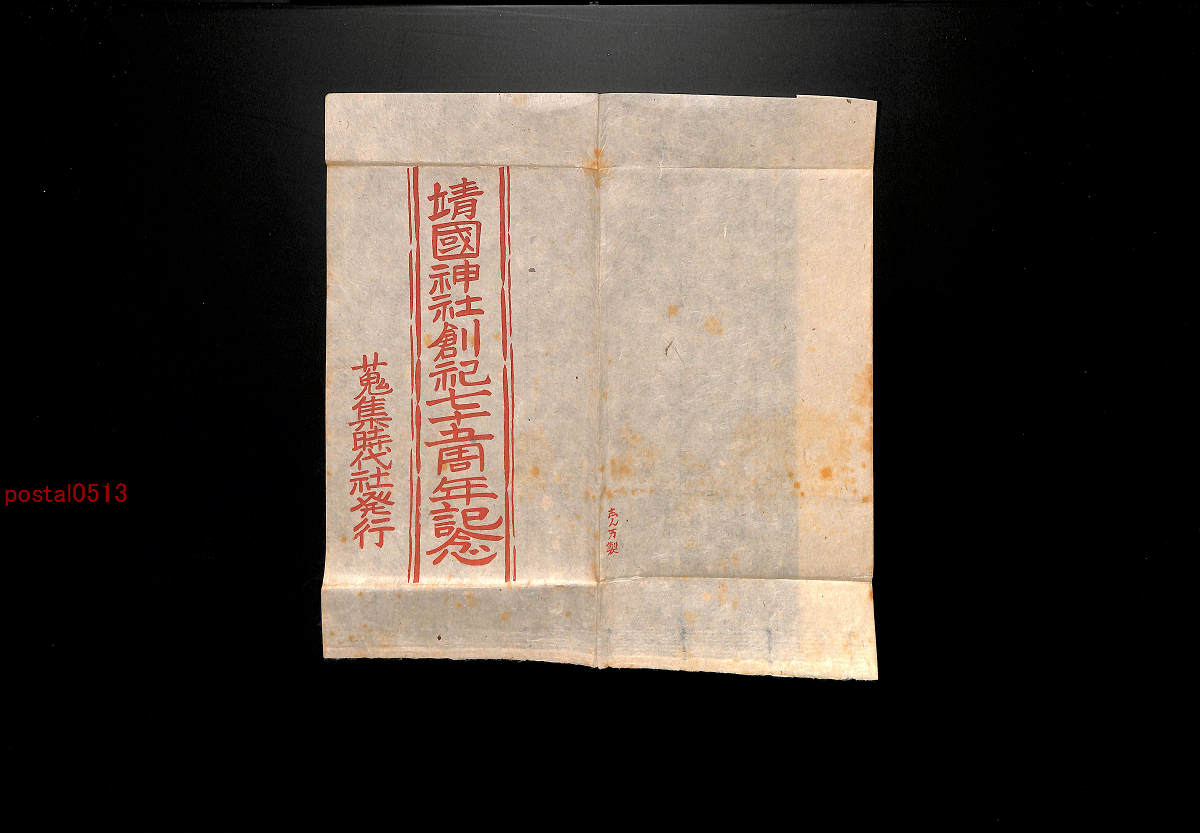 靖國神社創祀七十五周年記念
蒐集時代社発行
志ん万製
postal0513